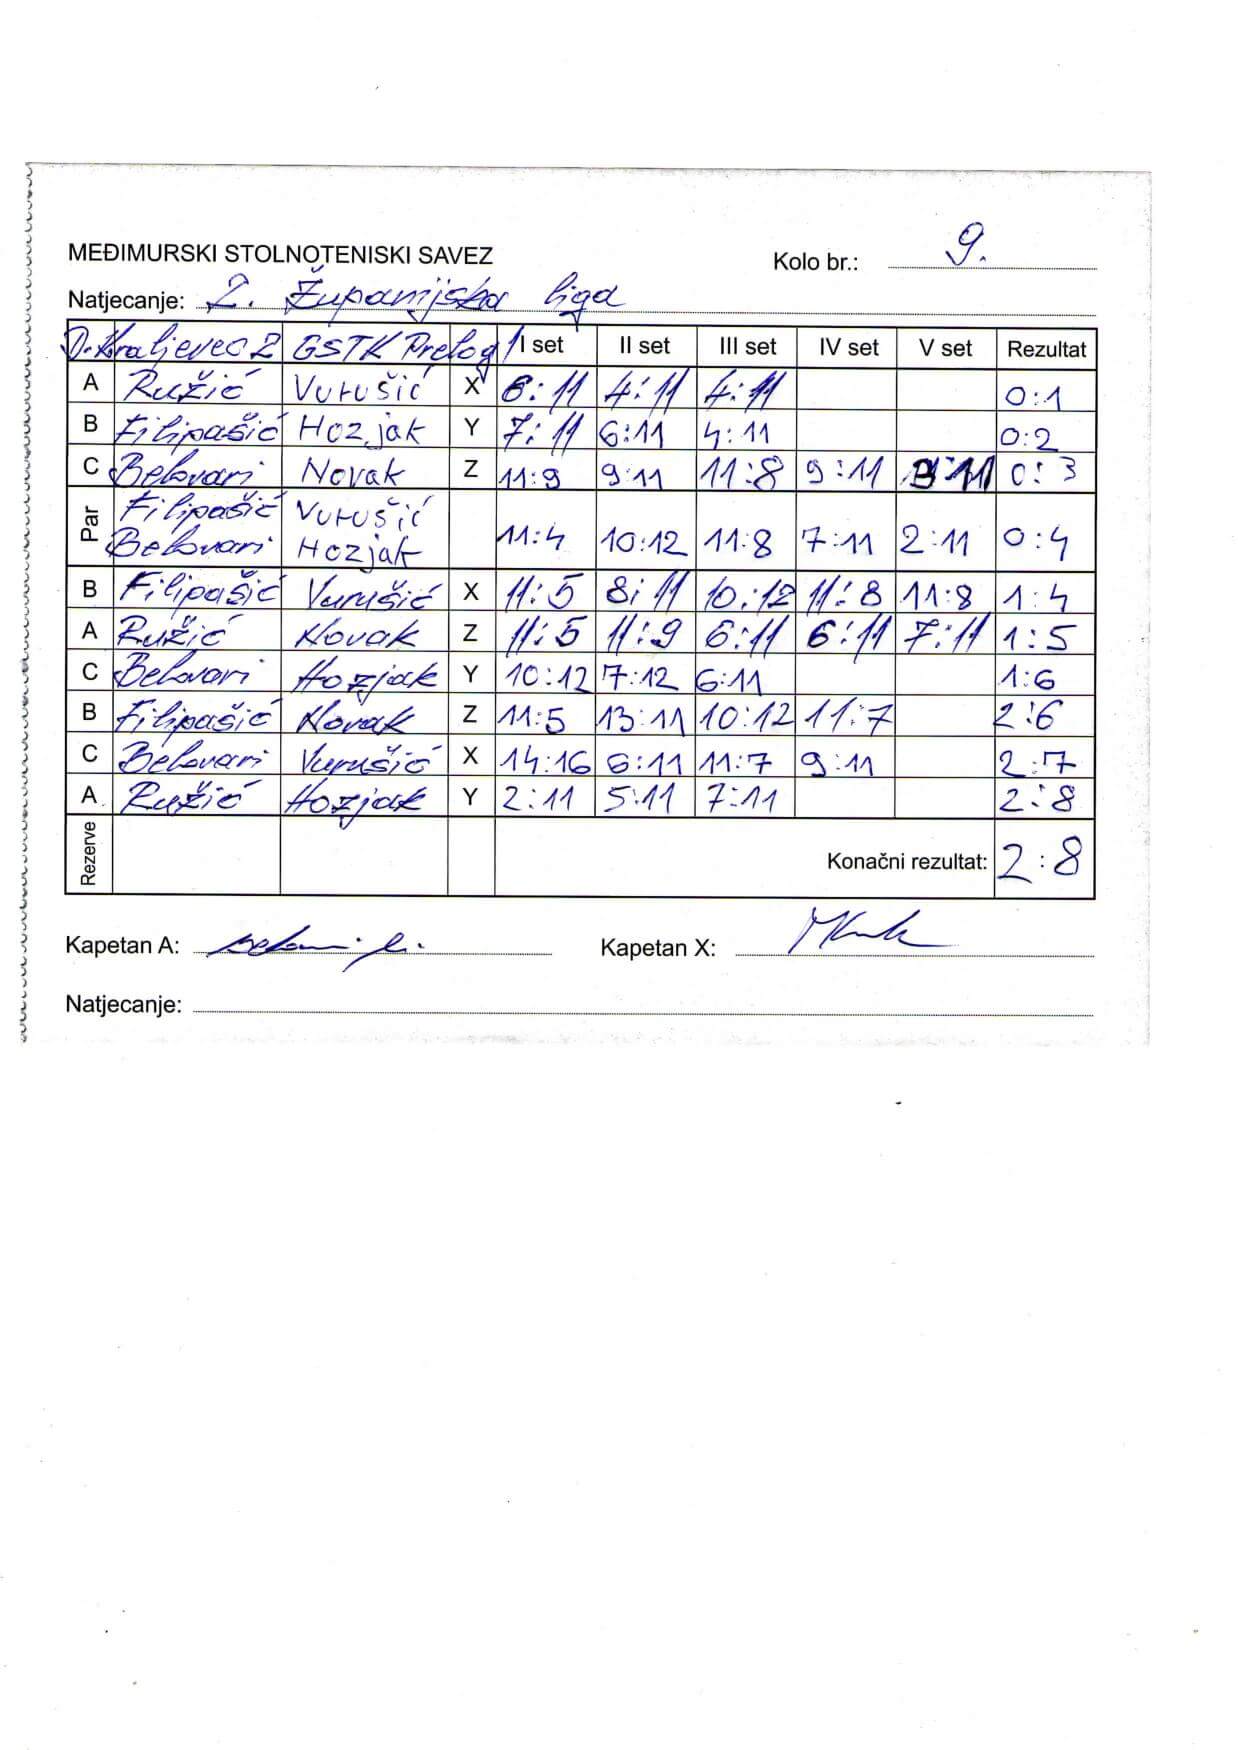 MEĐIMURSKI STOLNOTENISKI SAVEZ
Kolo br.: 9.
Natjecanje: 2. Županijska liga
D. Kraljevec 2 GSTK Prelog 1 I set II set III set IV set V set Rezultat
A Ružić Vurušić X 6:11 4:11 4:11 0:1
B Filipašić Hozjak Y 7:11 6:11 4:11 0:2
C Belovari Novak Z 11:9 9:11 11:8 9:11 0:3
Par Filipašić Vurušić
Belovari Hozjak 11:4 10:12 11:8 7:11 2:11 0:4
B Filipašić Vurušić X 11:5 8:11 10:12 11:8 11:8 1:4
A Ružić Novak Z 11:5 11:9 6:11 6:11 7:11 1:5
C Belovari Hozjak Y 10:12 7:12 6:11 1:6
B Filipašić Novak Z 11:5 13:11 10:12 11:7 2:6
C Belovari Vurušić X 14:16 6:11 11:7 9:11 2:7
A Ružić Hozjak Y 2:11 5:11 7:11 2:8
Rezerve Konačni rezultat: 2:8
Kapetan A: Kapetan X:
Natjecanje: